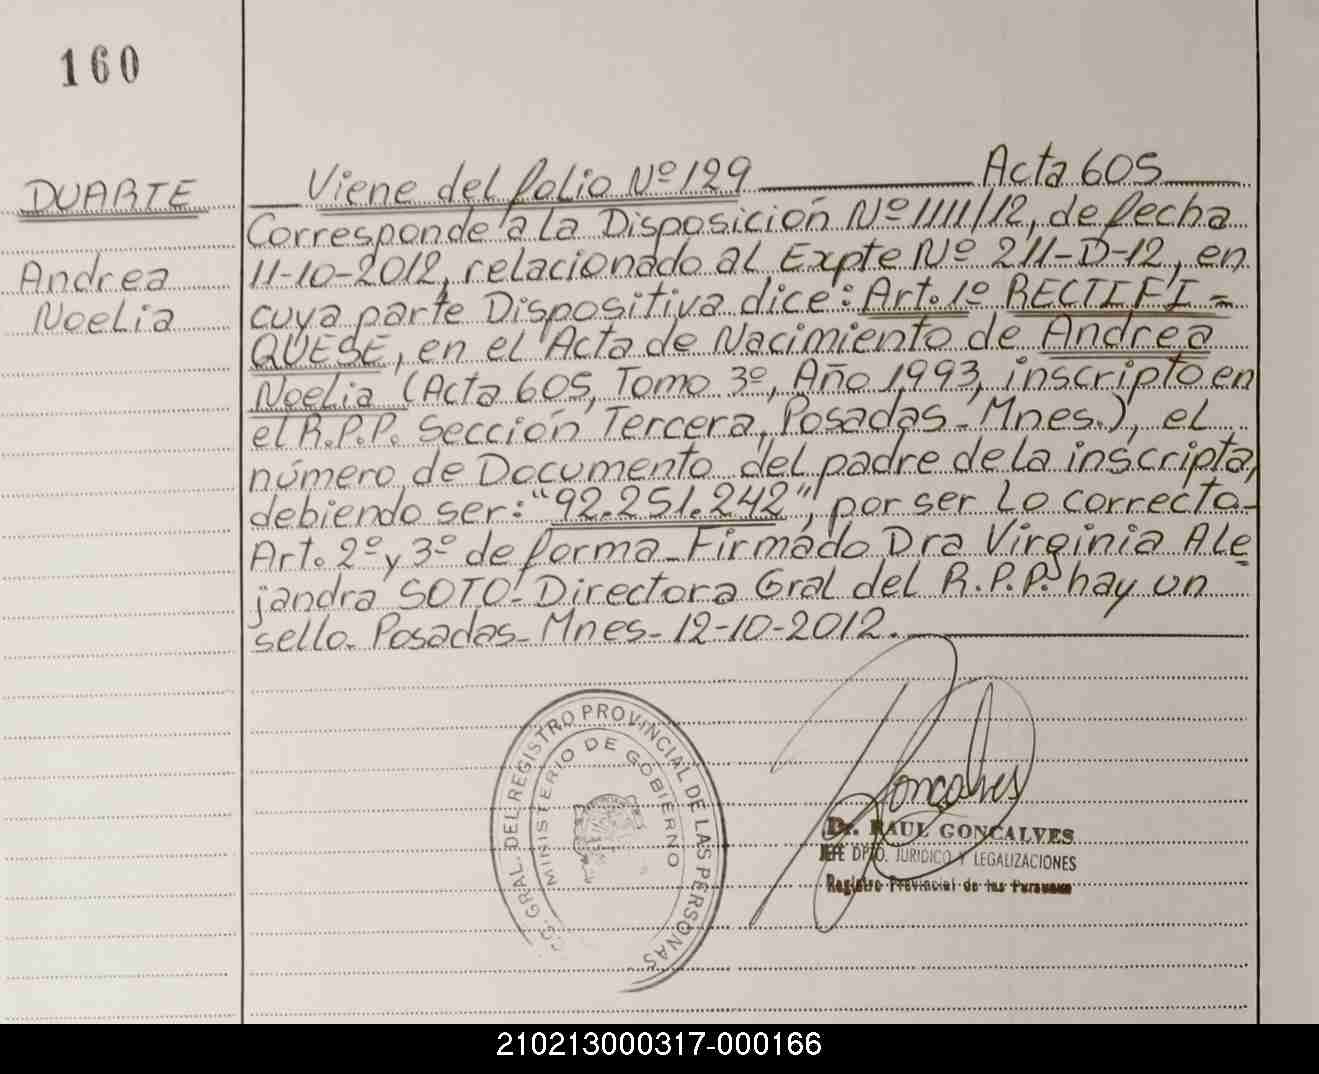 160
DUARTE
Andrea
Noelia
Viene del folio Nº 129 Acta 605
Corresponde a la Disposición Nº 1111/12, de fecha
11-10-2012, relacionado al Expte Nº 211-D-12, en
cuya parte Dispositiva dice: Art. 1º RECTIFI=
QUESE, en el Acta de Nacimiento de Andrea
Noelia (Acta 605, Tomo 3º, Año 1993, inscripto en
el R.P.P. Sección Tercera, Posadas-Mnes.), el
número de Documento del padre de la inscripta,
debiendo ser: "92.251.242", por ser lo correcto-
Art. 2º y 3º de forma-Firmado Dra Virginia Ale
jandra SOTO-Directora Gral del R.P.P. hay un
sello. Posadas-Mnes-12-10-2012.
GRAL. DEL REGISTRO PROVINCIAL DE LAS PERSONAS
MINISTERIO DE GOBIERNO
Goncalves
Dr. RAUL GONCALVES
JEFE DPTO. JURIDICO Y LEGALIZACIONES
Registro Provincial de las Personas
210213000317-000166